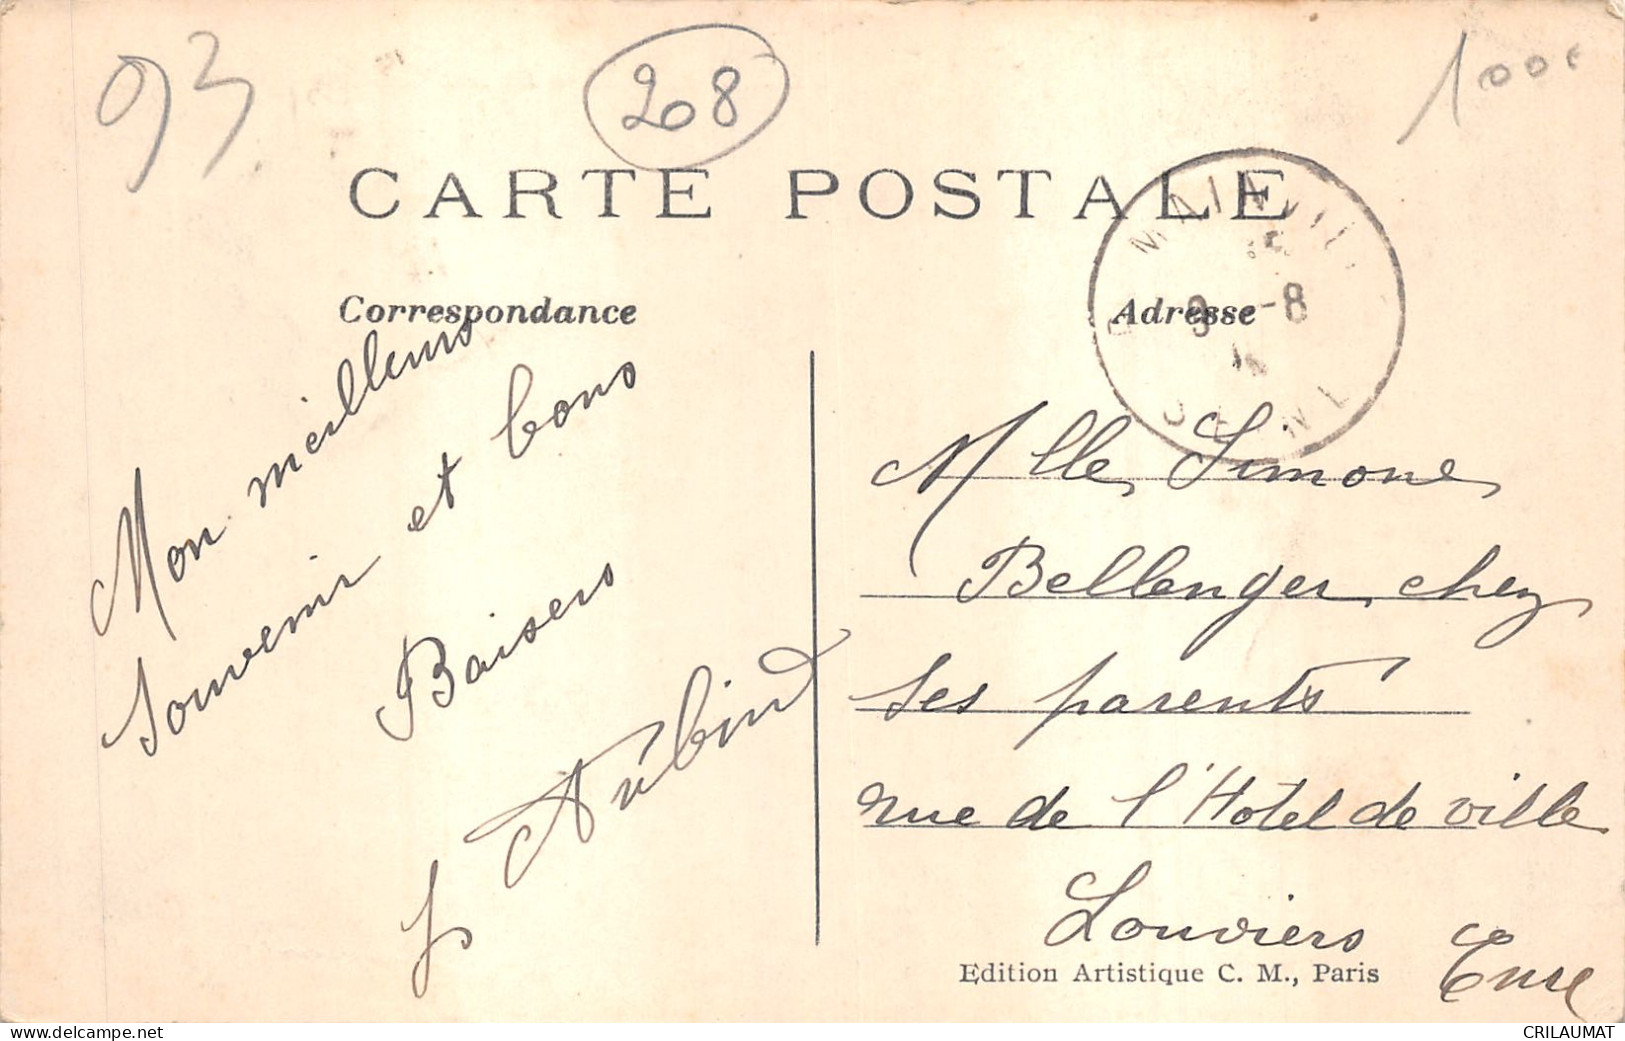 93
208
CARTE POSTALE
Correspondance
Adresse
9 -8
Mon meilleurs
souvenir et bons
Baisers
Mlle Simone
Bellenger chez
ses parents
rue de l'Hotel de ville
Louviers
Eure
Edition Artistique C. M., Paris
delcampe.net
CRILAUMAT